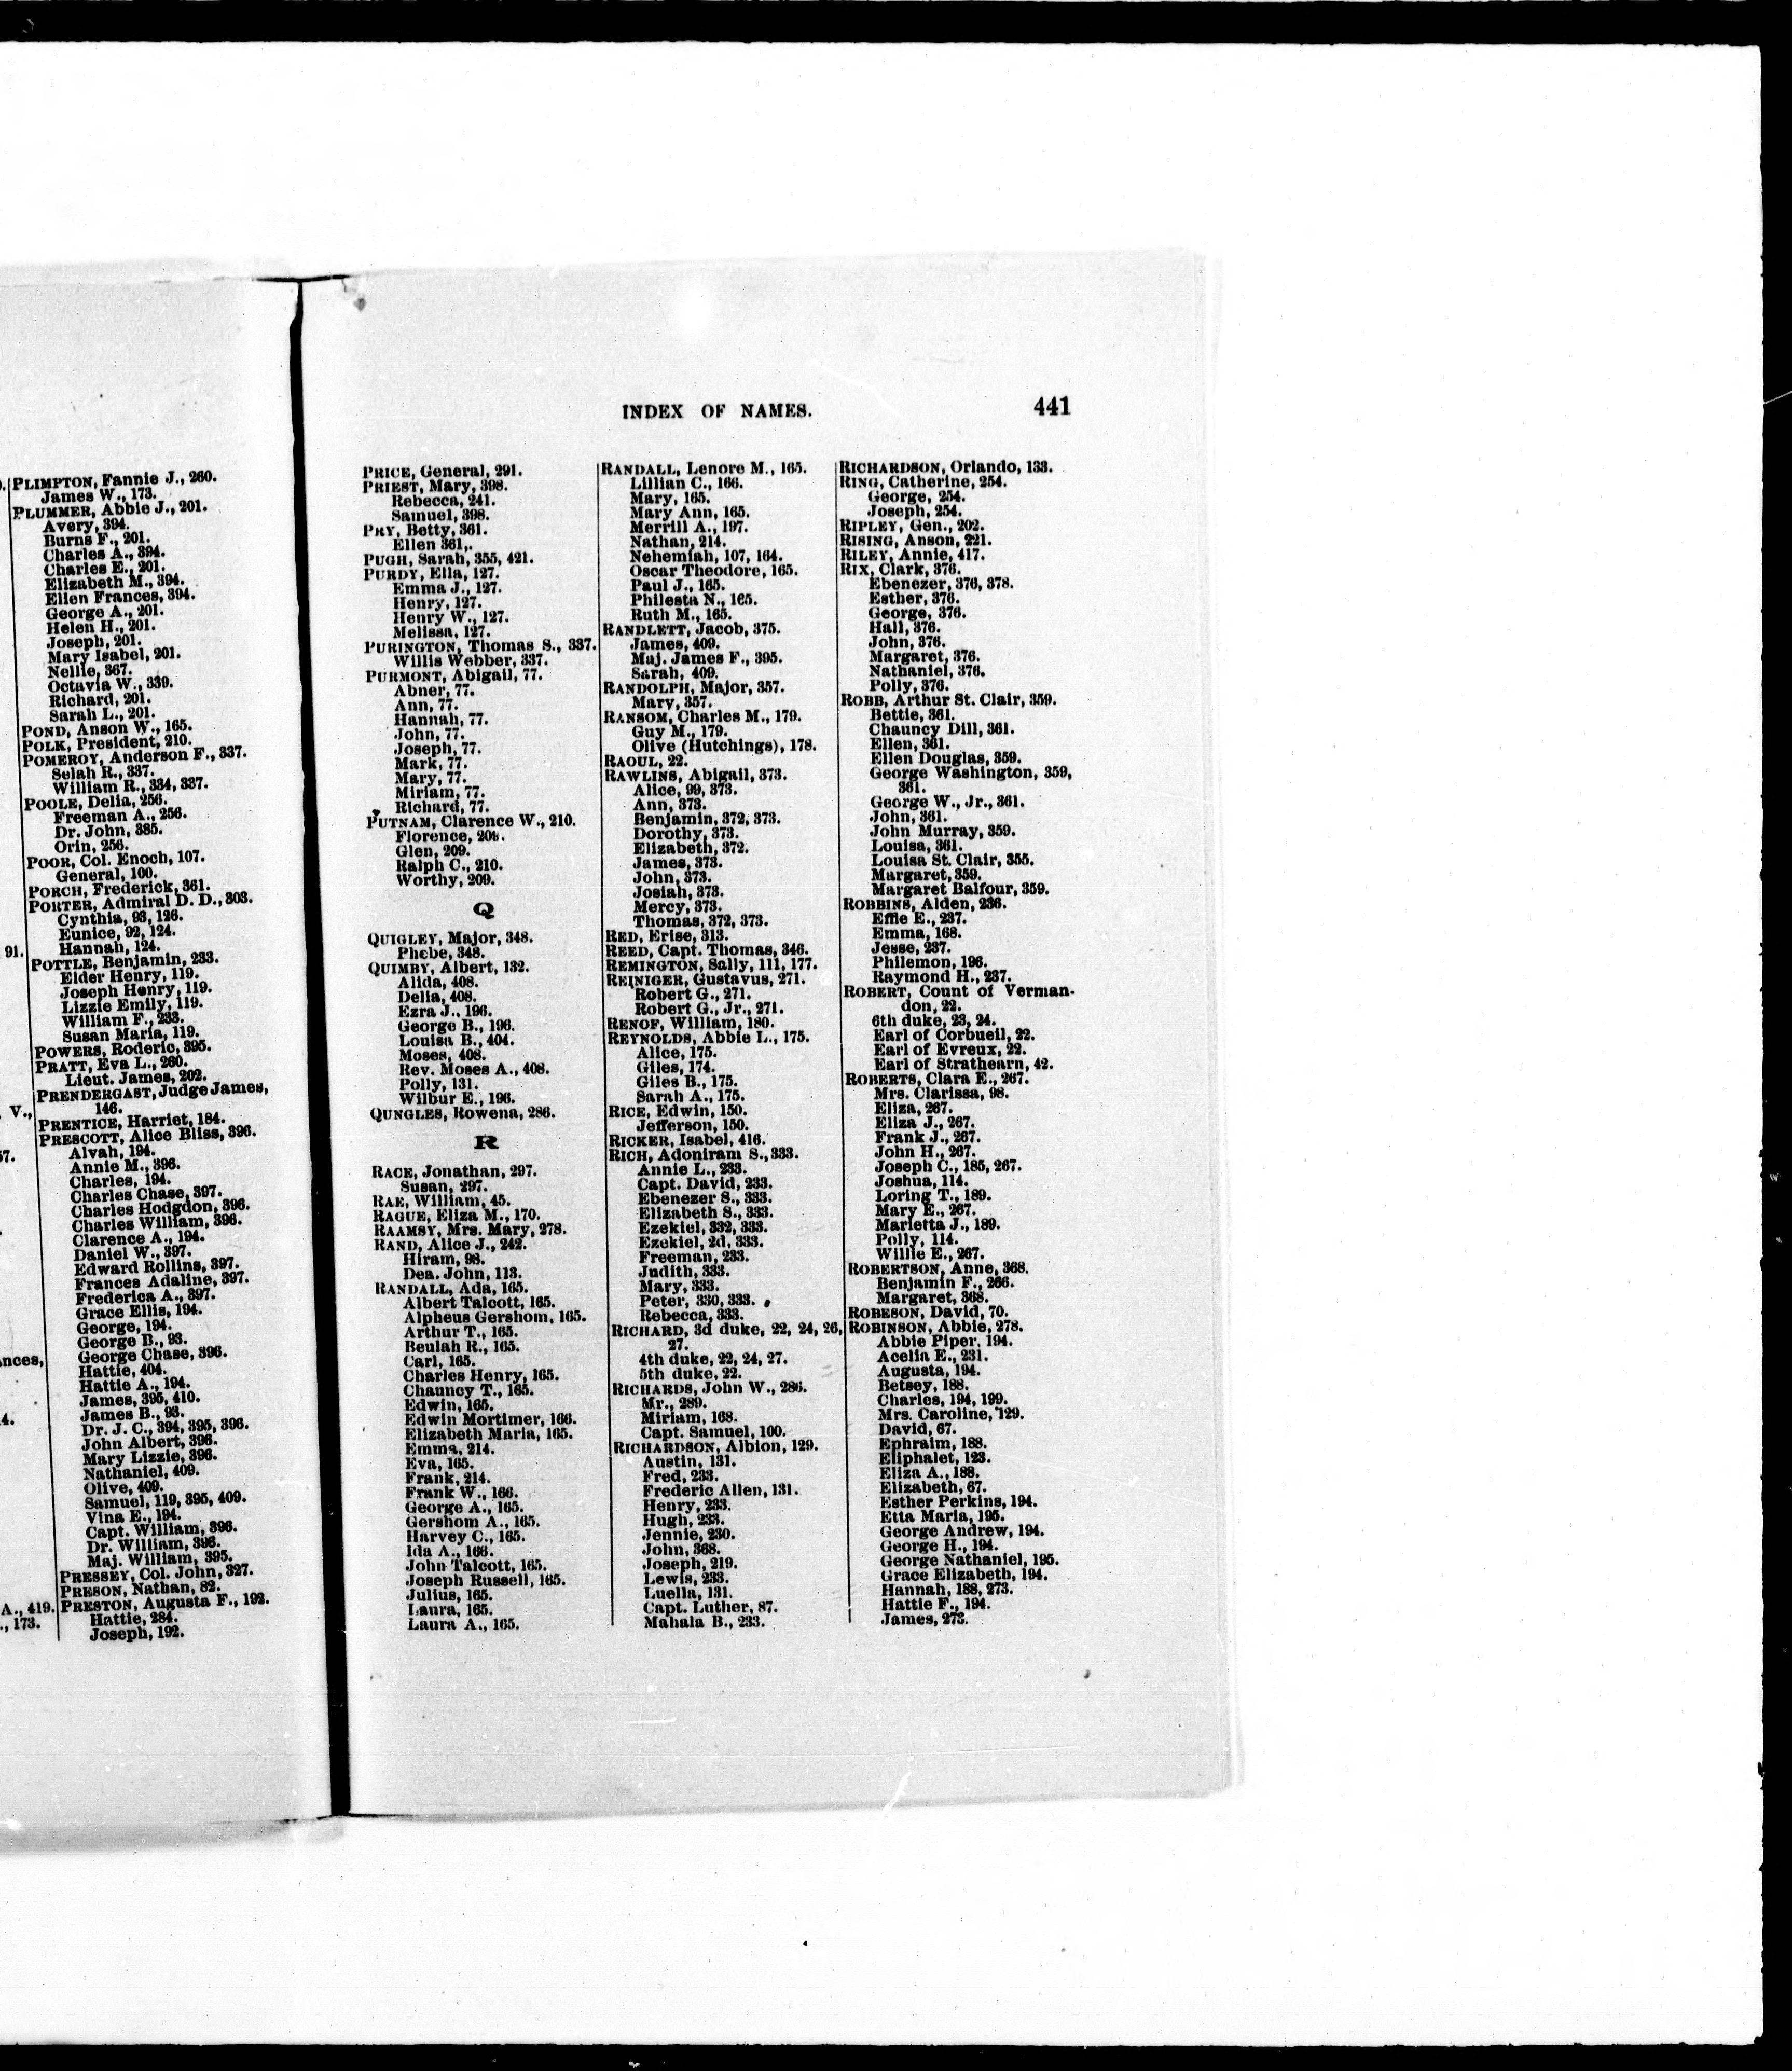 91.
V.,
57.
nces,
4.
A., 419.
., 173.
PLIMPTON, Fannie J., 260.
James W., 173.
PLUMMER, Abbie J., 201.
Avery, 394.
Burns F., 201.
Charles A., 394.
Charles E., 201.
Elizabeth M., 394.
Ellen Frances, 394.
George A., 201.
Helen H., 201.
Joseph, 201.
Mary Isabel, 201.
Nellie, 367.
Octavia W., 339.
Richard, 201.
Sarah L., 201.
POND, Anson W., 165.
POLK, President, 210.
POMEROY, Anderson F., 337.
Selah R., 337.
William R., 334, 337.
POOLE, Delia, 256.
Freeman A., 256.
Dr. John, 385.
Orin, 256.
POOR, Col. Enoch, 107.
General, 100.
PORCH, Frederick, 361.
PORTER, Admiral D. D., 303.
Cynthia, 93, 126.
Eunice, 92, 124.
Hannah, 124.
POTTLE, Benjamin, 233.
Elder Henry, 119.
Joseph Henry, 119.
Lizzie Emily, 119.
William F., 233.
Susan Maria, 119.
POWERS, Roderic, 395.
PRATT, Eva L., 260.
Lieut. James, 202.
PRENDERGAST, Judge James,
146.
PRENTICE, Harriet, 184.
PRESCOTT, Alice Bliss, 396.
Alvah, 194.
Annie M., 396.
Charles, 194.
Charles Chase, 397.
Charles Hodgdon, 396.
Charles William, 396.
Clarence A., 194.
Daniel W., 397.
Edward Rollins, 397.
Frances Adaline, 397.
Frederica A., 397.
Grace Ellis, 194.
George, 194.
George B., 93.
George Chase, 396.
Hattie, 404.
Hattie A., 194.
James, 395, 410.
James B., 93.
Dr. J. C., 394, 395, 396.
John Albert, 396.
Mary Lizzie, 396.
Nathaniel, 409.
Olive, 409.
Samuel, 119, 395, 409.
Vina E., 194.
Capt. William, 396.
Dr. William, 396.
Maj. William, 395.
PRESSEY, Col. John, 327.
PRESON, Nathan, 82.
PRESTON, Augusta F., 192.
Hattie, 284.
Joseph, 192.
INDEX OF NAMES. 441
PRICE, General, 291.
PRIEST, Mary, 398.
Rebecca, 241.
Samuel, 398.
PRY, Betty, 361.
Ellen 361,.
PUGH, Sarah, 355, 421.
PURDY, Ella, 127.
Emma J., 127.
Henry, 127.
Henry W., 127.
Melissa, 127.
PURINGTON, Thomas S., 337.
Willis Webber, 337.
PURMONT, Abigail, 77.
Abner, 77.
Ann, 77.
Hannah, 77.
John, 77.
Joseph, 77.
Mark, 77.
Mary, 77.
Miriam, 77.
Richard, 77.
PUTNAM, Clarence W., 210.
Florence,
Glen, 209.
Ralph C., 210.
Worthy, 209.
Q
QUIGLEY, Major, 348.
Phebe, 348.
QUIMBY, Albert, 132.
Alida, 408.
Delia, 408.
Ezra J., 196.
George B., 196.
Louisa B., 404.
Moses, 408.
Rev. Moses A., 408.
Polly, 131.
Wilbur E., 196.
QUNGLES, Rowena, 286.
R
RACE, Jonathan, 297.
Susan, 297.
RAE, William, 45.
RAGUE, Eliza M., 170.
RAAMSY, Mrs. Mary, 278.
RAND, Alice J., 242.
Hiram, 98.
Dea. John, 113.
RANDALL, Ada, 165.
Albert Talcott, 165.
Alpheus Gershom, 165.
Arthur T., 165.
Beulah R., 165.
Carl, 165.
Charles Henry, 165.
Chauncy T., 165.
Edwin, 165.
Edwin Mortimer, 166.
Elizabeth Maria, 165.
Emma, 214.
Eva, 165.
Frank, 214.
Frank W., 166.
George A., 165.
Gershom A., 165.
Harvey C., 165.
Ida A., 166.
John Talcott, 165.
Joseph Russell, 165.
Julius, 165.
Laura, 165.
Laura A., 165.
RANDALL, Lenore M., 165.
Lillian C., 166.
Mary, 165.
Mary Ann, 165.
Merrill A., 197.
Nathan, 214.
Nehemiah, 107, 164.
Oscar Theodore, 165.
Paul J., 165.
Philesta N., 165.
Ruth M., 165.
RANDLETT, Jacob, 375.
James, 409.
Maj. James F., 395.
Sarah, 409.
RANDOLPH, Major, 357.
Mary, 357.
RANSOM, Charles M., 179.
Guy M., 179.
Olive (Hutchings), 178.
RAOUL, 22.
RAWLINS, Abigail, 373.
Alice, 99, 373.
Ann, 373.
Benjamin, 372, 373.
Dorothy, 373.
Elizabeth, 372.
James, 373.
John, 373.
Josiah, 373.
Mercy, 373.
Thomas, 372, 373.
RED, Erise, 313.
REED, Capt. Thomas, 346.
REMINGTON, Sally, 111, 177.
REINIGER, Gustavus, 271.
Robert G., 271.
Robert G., Jr., 271.
RENOF, William, 180.
REYNOLDS, Abbie L., 175.
Alice, 175.
Giles, 174.
Giles B., 175.
Sarah A., 175.
RICE, Edwin, 150.
Jefferson, 150.
RICKER, Isabel, 416.
RICH, Adoniram S., 333.
Annie L., 233.
Capt. David, 233.
Ebenezer S., 333.
Elizabeth S., 333.
Ezekiel, 332, 333.
Ezekiel, 2d, 333.
Freeman, 233.
Judith, 333.
Mary, 333.
Peter, 330, 333.
Rebecca, 333.
RICHARD, 3d duke, 22, 24, 26,
27.
4th duke, 22, 24, 27.
5th duke, 22.
RICHARDS, John W., 286.
Mr., 289.
Miriam, 168.
Capt. Samuel, 100.
RICHARDSON, Albion, 129.
Austin, 131.
Fred, 233.
Frederic Allen, 131.
Henry, 233.
Hugh, 233.
Jennie, 230.
John, 368.
Joseph, 219.
Lewis, 233.
Luella, 131.
Capt. Luther, 87.
Mahala B., 233.
RICHARDSON, Orlando, 133.
RING, Catherine, 254.
George, 254.
Joseph, 254.
RIPLEY, Gen., 202.
RISING, Anson, 221.
RILEY, Annie, 417.
RIX, Clark, 376.
Ebenezer, 376, 378.
Esther, 376.
George, 376.
Hall, 376.
John, 376.
Margaret, 376.
Nathaniel, 376.
Polly, 376.
ROBB, Arthur St. Clair, 359.
Bettie, 361.
Chauncy Dill, 361.
Ellen, 361.
Ellen Douglas, 359.
George Washington, 359,
361.
George W., Jr., 361.
John, 361.
John Murray, 359.
Louisa, 361.
Louisa St. Clair, 355.
Margaret, 359.
Margaret Balfour, 359.
ROBBINS, Alden, 236.
Effie E., 237.
Emma, 168.
Jesse, 237.
Philemon, 196.
Raymond H., 237.
ROBERT, Count of Verman-
don, 22.
6th duke, 23, 24.
Earl of Corbueil, 22.
Earl of Evreux, 22.
Earl of Strathearn, 42.
ROBERTS, Clara E., 267.
Mrs. Clarissa, 98.
Eliza, 267.
Eliza J., 267.
Frank J., 267.
John H., 267.
Joseph C., 185, 267.
Joshua, 114.
Loring T., 189.
Mary E., 267.
Marietta J., 189.
Polly, 114.
Willie E., 267.
ROBERTSON, Anne, 368.
Benjamin F., 266.
Margaret, 368.
ROBESON, David, 70.
ROBINSON, Abbie, 278.
Abbie Piper, 194.
Acelia E., 231.
Augusta, 194.
Betsey, 188.
Charles, 194, 199.
Mrs. Caroline, 129.
David, 67.
Ephraim, 188.
Eliphalet, 123.
Eliza A., 188.
Elizabeth, 67.
Esther Perkins, 194.
Etta Maria, 195.
George Andrew, 194.
George H., 194.
George Nathaniel, 195.
Grace Elizabeth, 194.
Hannah, 188, 273.
Hattie F., 194.
James, 273.